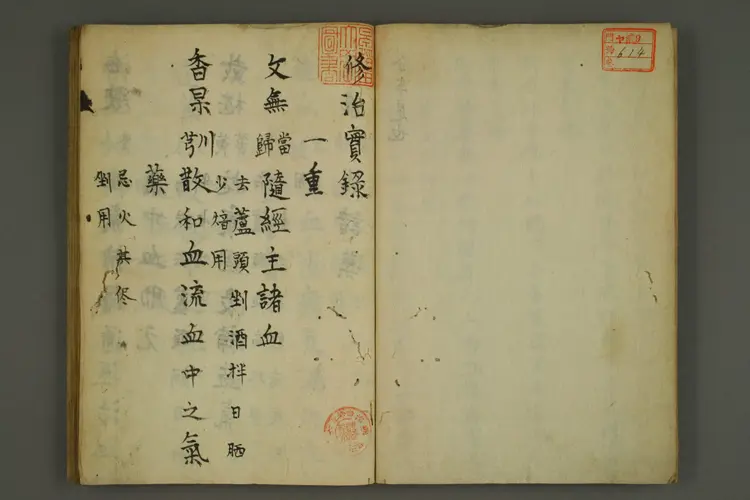 修治實錄
一重
文無 當歸 隨經主諸血
去蘆頭剉酒拌日晒
少焙用
香杲 川芎 散和血流血中之氣
藥
忌火其侭
剉用
614